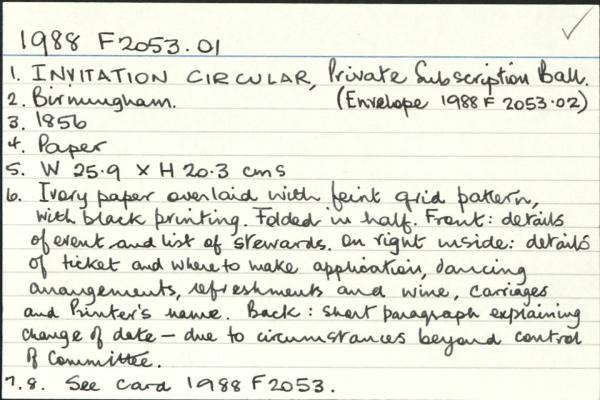 1988 F2053.01
1. INVITATION CIRCULAR, Private Subscription Ball.
2. Birmingham. (Envelope 1988 F 2053.02)
3. 1856
4. Paper
5. W 25.9 x H 20.3 cms
6. Ivory paper overlaid with feint grid pattern,
with black printing. Folded in half. Front: details
of event and list of stewards. On right inside: details
of ticket and where to make application, dancing
arrangements, refreshments and wine, carriages
and Printer's name. Back: short paragraph explaining
change of date – due to circumstances beyond control
of Committee.
7.8. See card 1988 F2053.